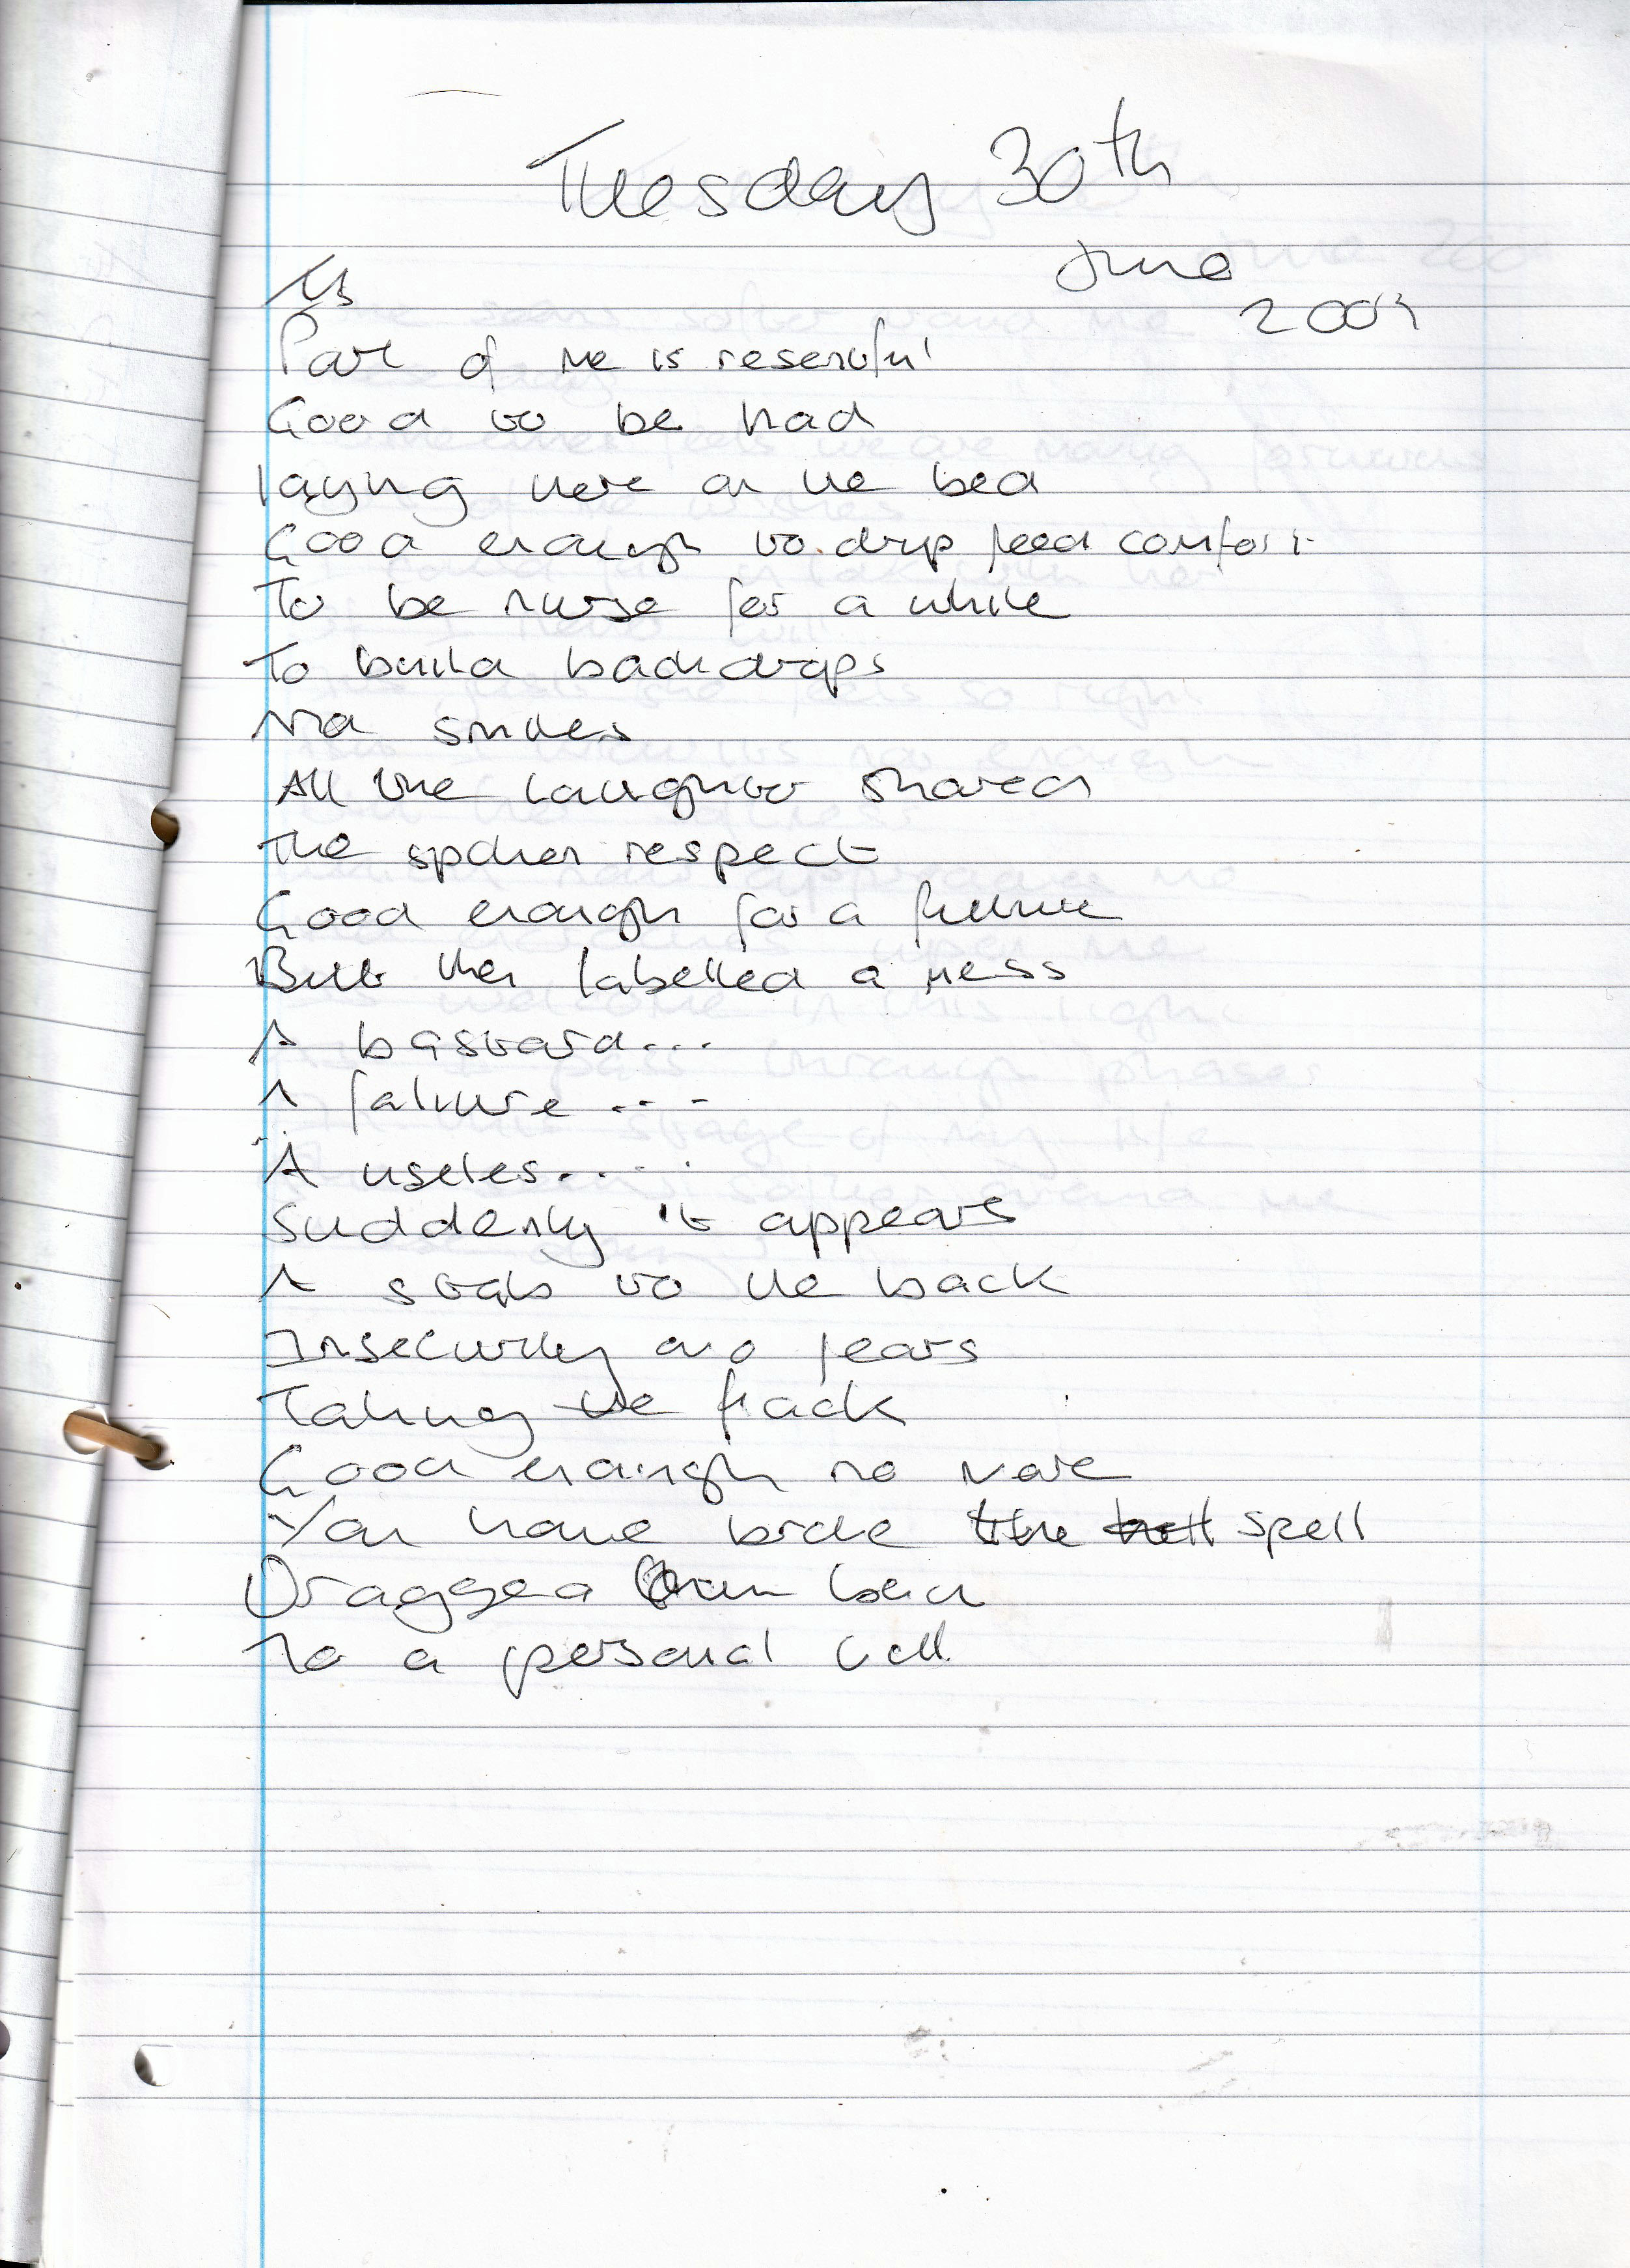 Tuesday 30th
June
2009
Part of me is resentful
Good to be had
laying here on the bed
Good enough to drip feed comfort
To be nurse for a while
To build backdrops
Via smiles
All the laughter shared
The spoken respect
Good enough for a future
But then labelled a mess
A bastard...
A failure...
A useles.....
Suddenly it appears
A stab to the back
Insecurity and fears
Taking the flack
Good enough no more
You have broke the hell spell
Dragged back
To a personal hell